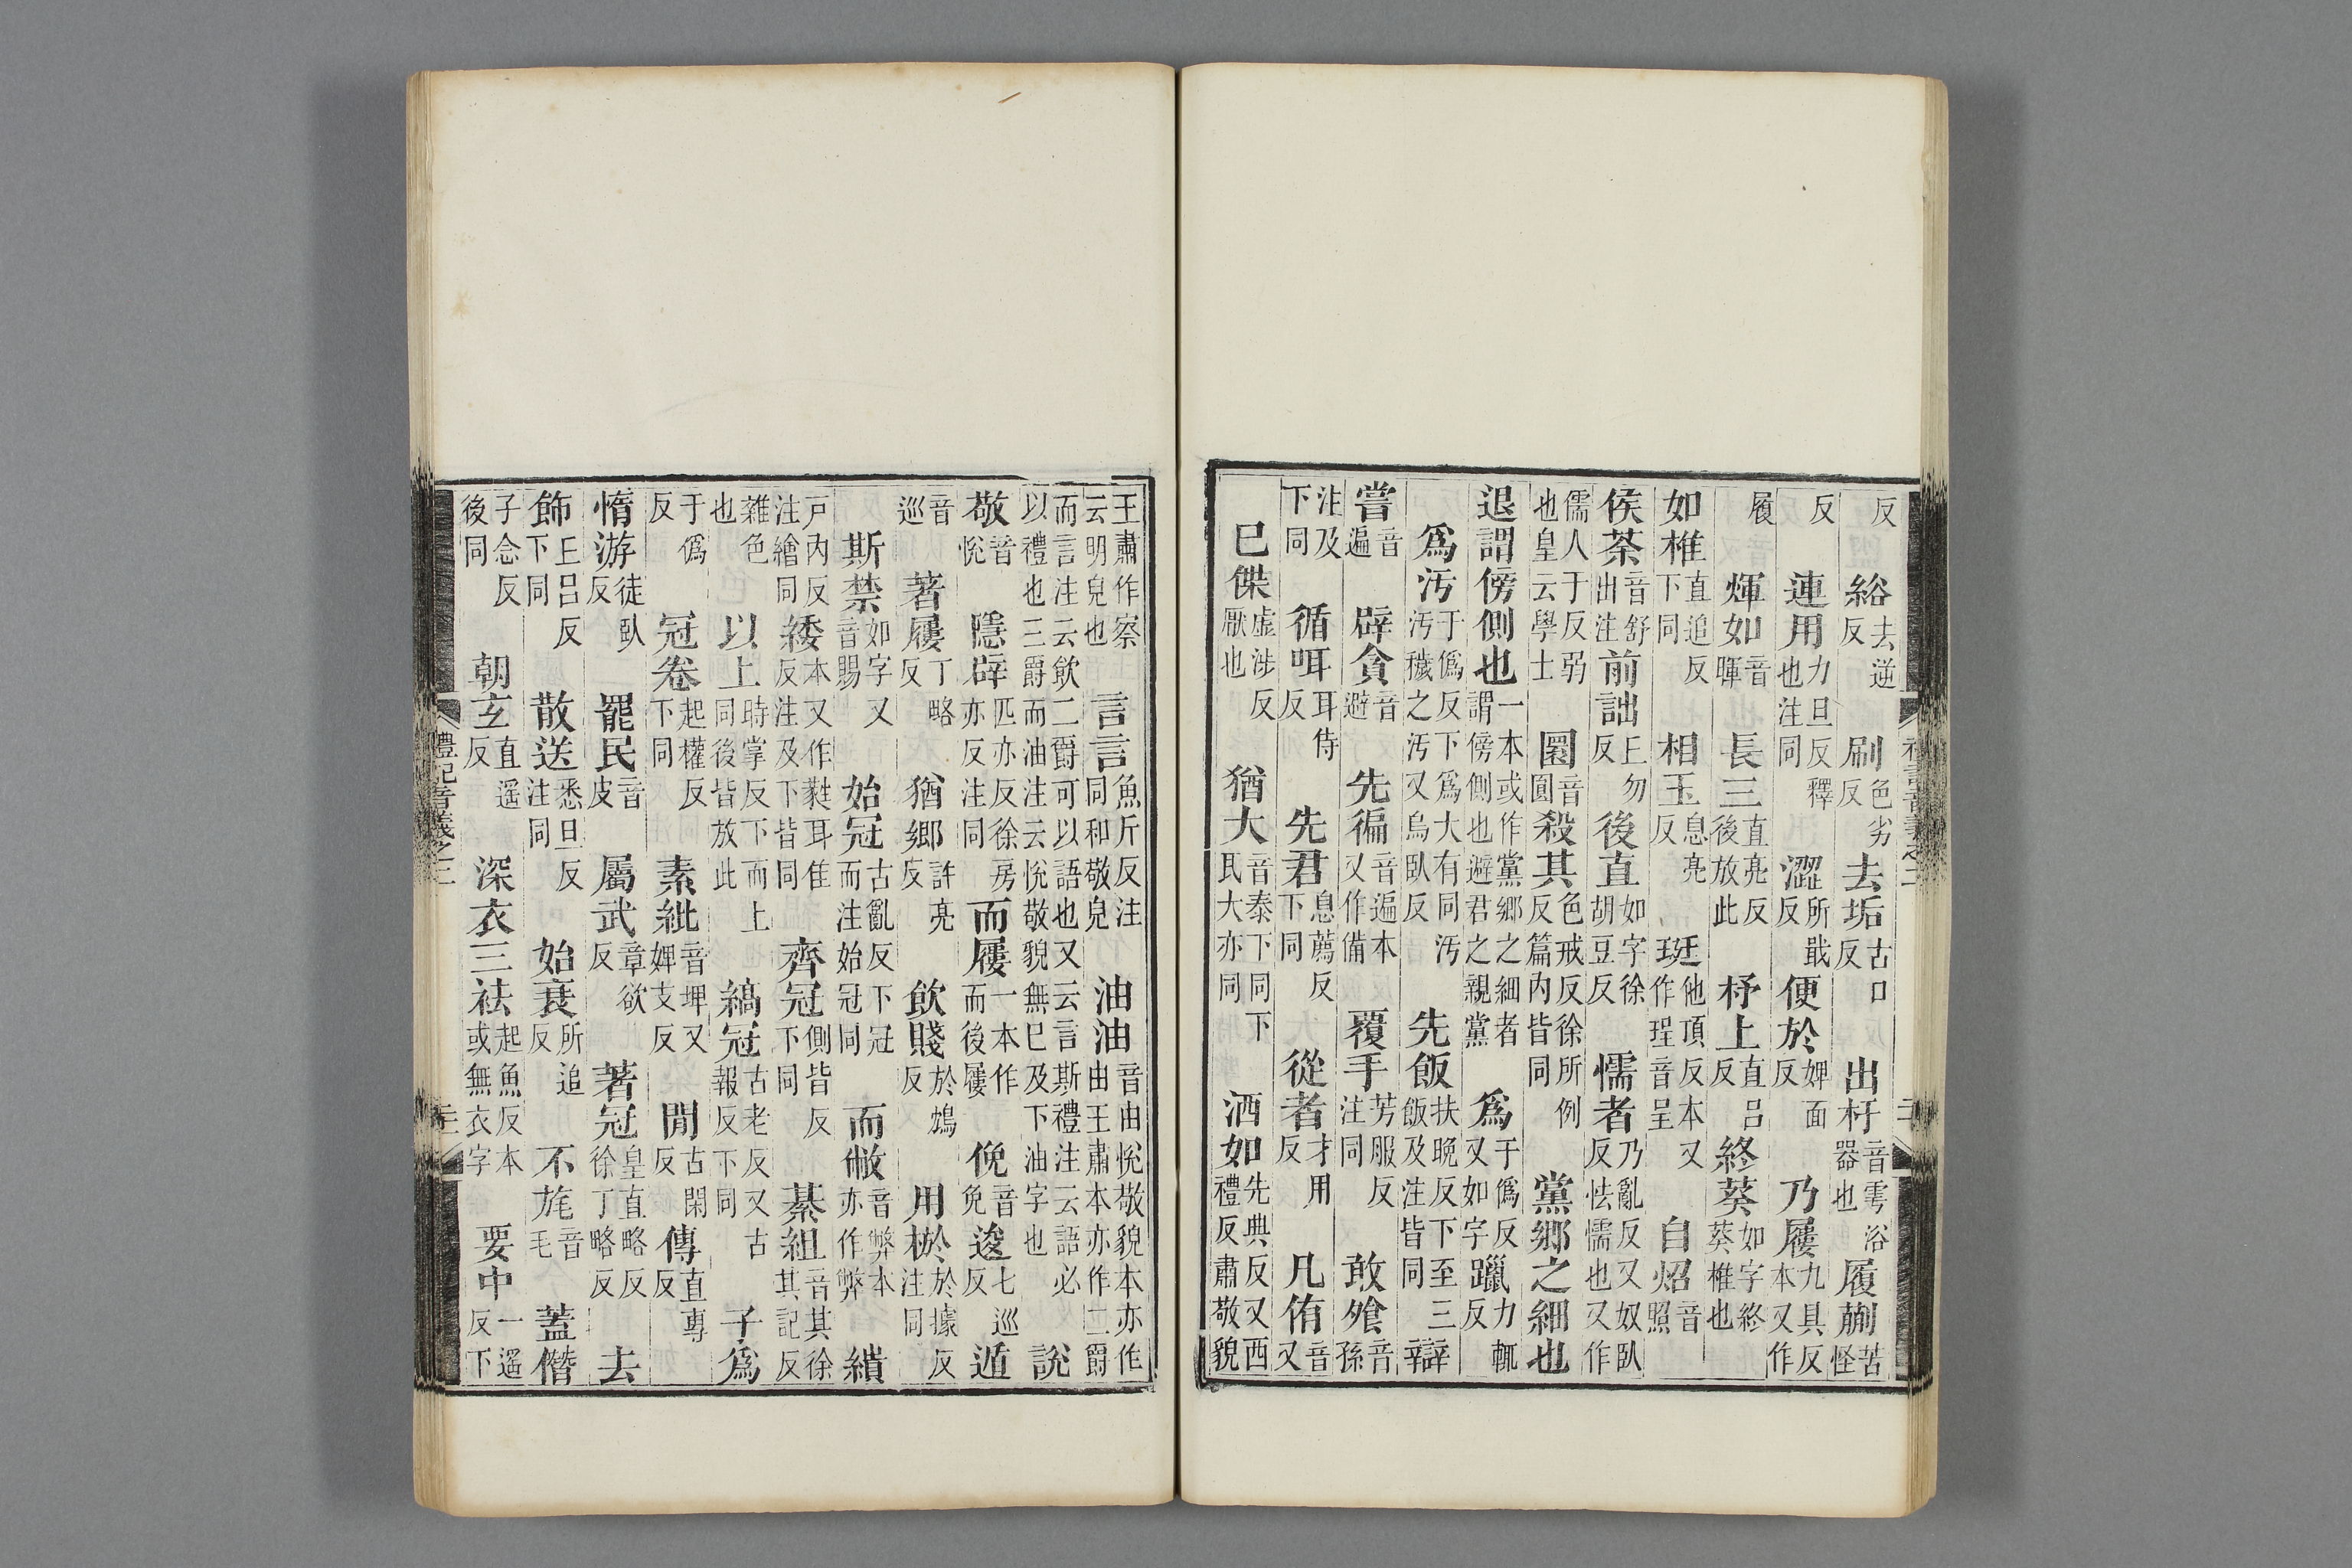 反　綌去逆反　刷色劣反　去垢古口反　出杅音雩浴器也　履蒯苦怪
反　連用力旦反釋也注同　澀所戢反　便於婢面反　乃屨九具反本又作
履　煇如音暉　長三直亮反後放此　杼上直吕反　終葵如字終葵椎也
如椎直追反下同　相玉息亮反　珽他頂反本又作珵音呈　自炤音照
侯荼音舒出注　前詘丘勿反　後直如字徐胡豆反　懦者乃亂反又奴臥反怯懦也又作
儒人于反弱也皇云學士　圜音圓　殺其色戒反徐所例反篇内皆同　黨鄉之細也
退謂傍側也一本或作黨鄉之細者謂傍側也避君之親黨　爲于僞反又如字　躐力輒反
爲汚于僞反下爲大有同汚汚穢之汚又烏臥反　先飯扶晚反下至三飯及注皆同　辯
嘗音遍　辟貪音避　先徧音遍本又作備　覆手芳服反注同　敢飧音孫
注及下同　循咡耳侍反　先君息薦反下同　從者才用反　凡侑音又
已傑虛涉反厭也　猶大音泰下同下民大亦同　洒如先典反又西禮反肅敬貌
王肅作察云明皃也　言言魚斤反注同和敬皃　油油音由悅敬貌本亦作由王肅本亦作二爵
而言注云飲二爵可以語也又云言斯禮注云語必以禮也三爵而油注云悅敬貌無已及下油字也　說
敬音悅　隱辟匹亦反徐房亦反注同　而屨一本作而後屨　俛音免　逡七巡反　遁
音巡　著屨丁略反　猶鄉許亮反　飲賤於鴆反　用棜於據反注同
斯禁如字又音賜　始冠古亂反下冠而注始冠同　而敝音弊本亦作弊　繢
戶内反注繪同　緌本又作蕤耳隹反注及下皆同　齊冠側皆反下同　綦組音其徐其記反
雜色也　以上時掌反下而上同後皆放此　縞冠古老反又古報反下同　子爲
于僞反　冠卷起權反下同　素紕音埤又婢支反　閒古閑反　傳直專反
惰游徒臥反　罷民音皮　屬武章欲反　著冠皇直略反徐丁略反　去
飾丘吕反下同　散送悉旦反注同　始衰所追反　不旄音毛　蓋僭
子念反後同　朝玄直遥反　深衣三袪起魚反本或無衣字　要中一遥反下
禮記音義之二